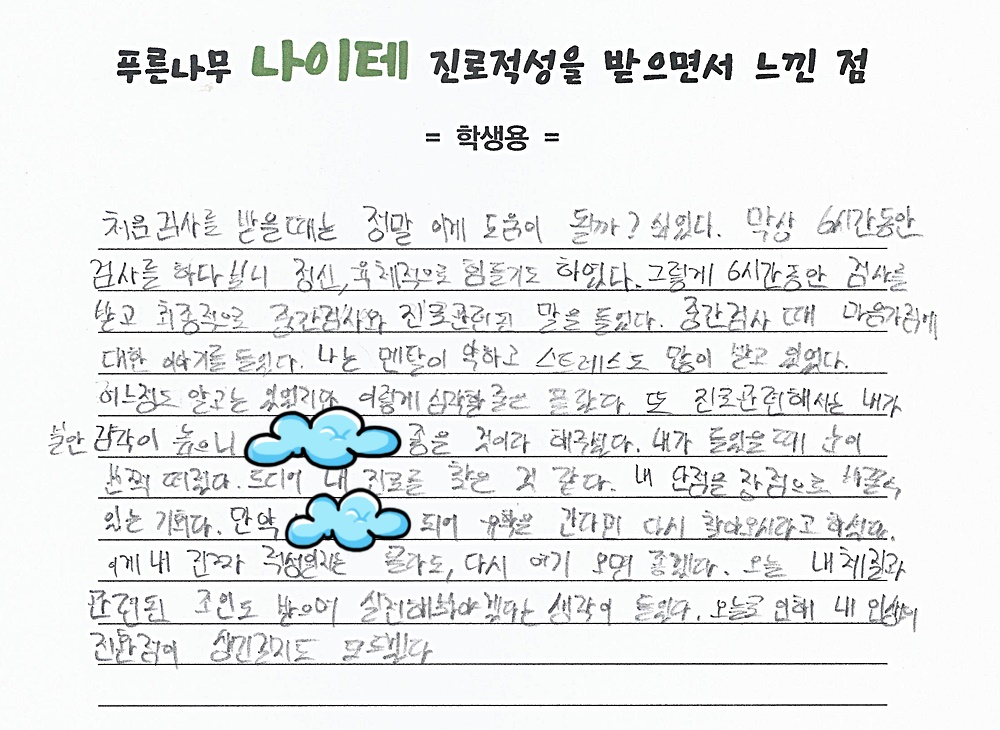 푸른나무 나이테 진로적성을 받으면서 느낀 점
= 학생용 =
처음 검사를 받을때는 정말 이게 도움이 될까? 싶었다. 막상 6시간동안
검사를 하다보니 정신,육체적으로 힘들기도 하였다. 그렇게 6시간동안 검사를
받고 최종적으로 중간검사와 진로관련된 말을 들었다. 중간검사 때 마음가짐에
대한 이야기를 들었다. 나는 멘탈이 약하고 스트레스도 많이 받고 있었다.
어느정도 알고는 있었지만 이렇게 심각할 줄은 몰랐다. 또 진로관련해서는 내가
불안 감각이 높으니 좋은 것이라 해주셨다. 내가 들었을 때 눈이
번쩍 떠졌다. 드디어 내 진로를 찾은 것 같다. 내 단점을 장점으로 바꿀수
있는 기회다. 만약 되어 유학을 간다면 다시 찾아오시라고 하셨다.
이게 내 진짜 적성인지는 몰라도, 다시 여기 오면 좋겠다. 오늘 내체질과
관련된 조언도 받으며 실천해봐야겠다는 생각이 들었다. 오늘로 인해 내 인생의
전환점이 생긴걸지도 모르겠다